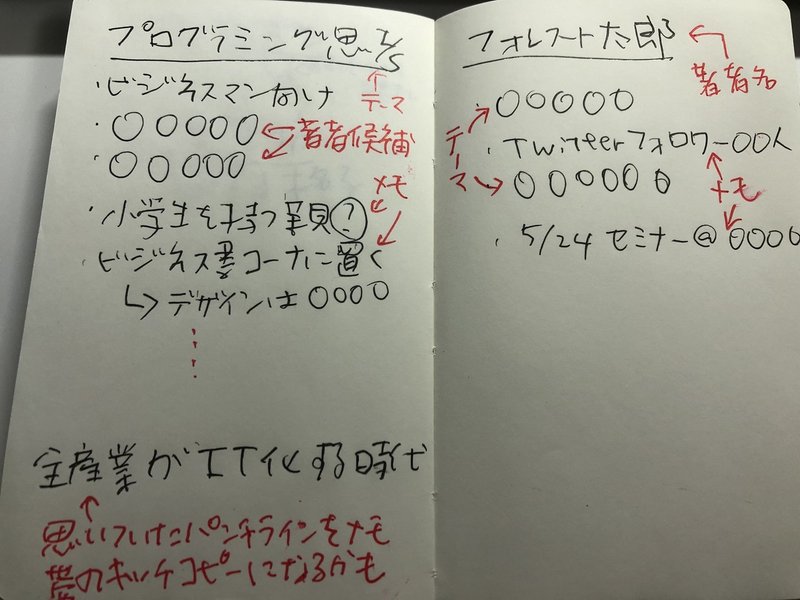 プログラミング思
テーマ
・ビジネスマン向け
・○○○○○
・○○○○○
著者候補
メモ
・小学生を持つ親?
・ビジネス書コーナーに置く
↳デザインは○○○○
全産業がIT化する時代
思いついたパンチラインをメモ
のキャッチコピーになるかも
フォレスト太郎
著者名
・○○○○○
・Twitterフォロワー○○人
・○○○○○○
テーマ
メモ
・5/24 セミナー@○○○○